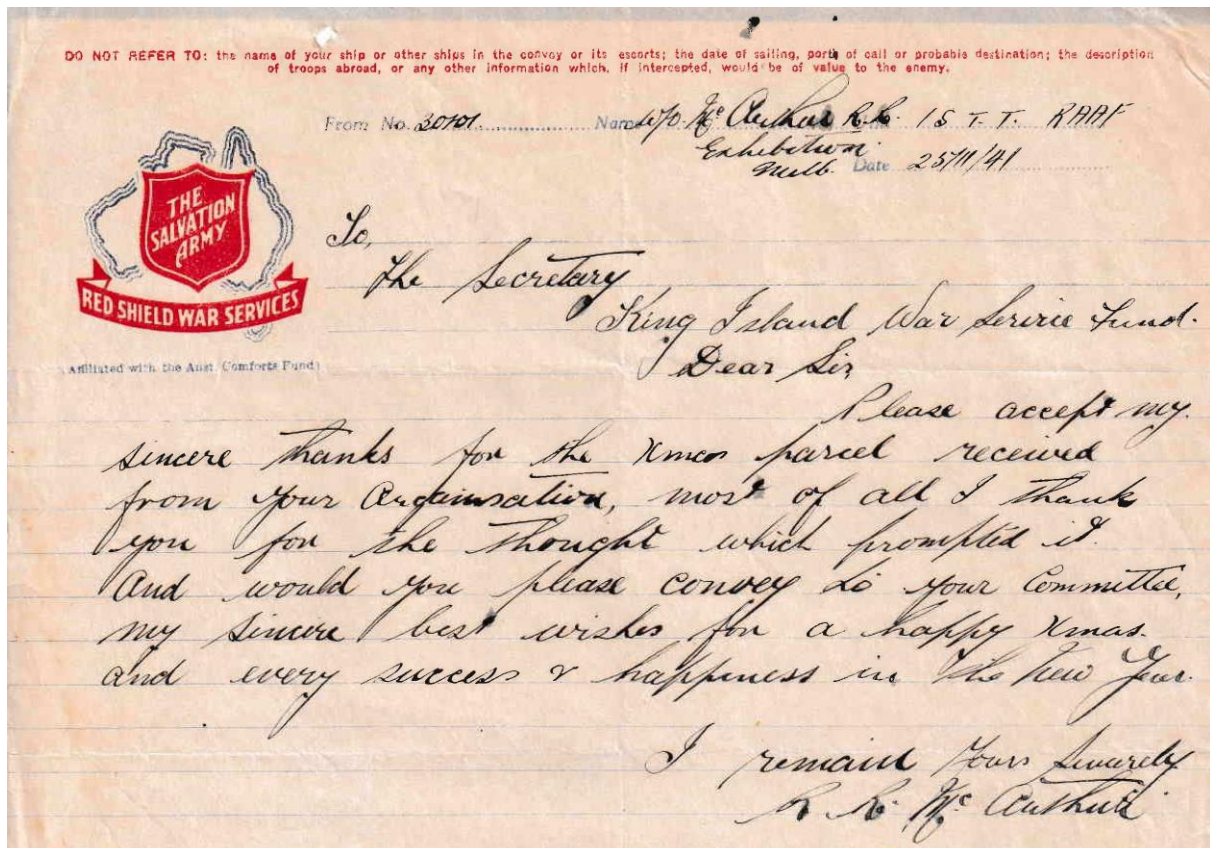 DO NOT REFER TO: the name of your ship or other ships in the convoy or its escorts; the date of sailing, ports of call or probable destination; the description
of troops abroad, or any other information which, if intercepted, would be of value to the enemy.
From No. Name W/O Mc Arthur R.R. 1 S T. T. RAAF
Exhibition
Melb. Date 25/11/41
THE
SALVATION
ARMY
RED SHIELD WAR SERVICES
(Affiliated with the Aust. Comforts Fund)
To,
The Secretary
King Island War Service Fund.
Dear Sir,
Please accept my
sincere thanks for the Xmas parcel received
from your Organisation, most of all I thank
you for the thought which prompted it.
And would you please convey to your Committee,
my sincere best wishes for a happy Xmas.
and every success & happiness in the New Year.
I remain Yours Sincerely
R R. Mc Arthur